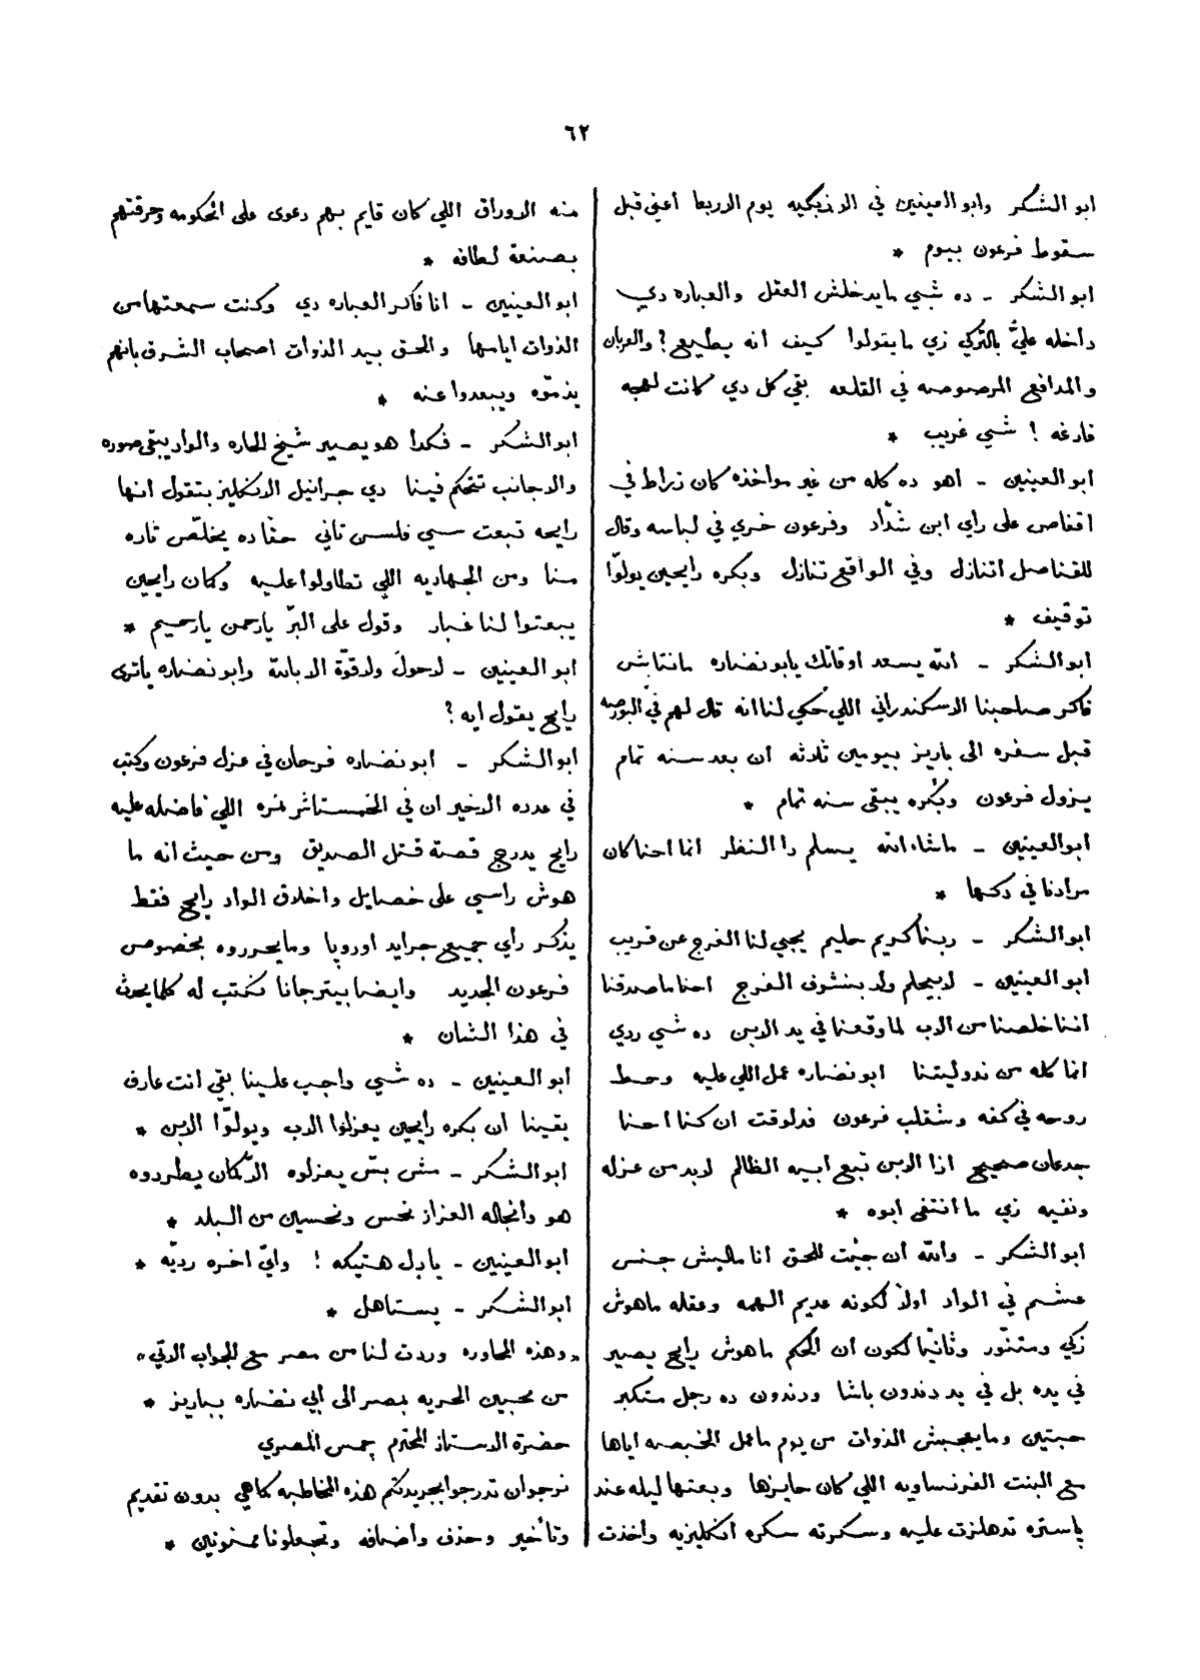 ٦٢
ابو الشكر وابو العينين في الازبكيه يوم الاربعا أعني قبل
سقوط فرعون بيوم *
ابو الشكر - ده شيي مايدخلش العقل والعباره دي
داخله عليّ بالتركي زي مايقولوا كيف انه يطيع؟ والعربان
والمدافع المرصوصه في القلعه بقي كل دي كانت لعبه
فارغه ! شيي غريب *
ابو العينين - اهو ده كله من غير مواخذه كان زراط في
اقفاص على راي ابن شدّاد وفرعون خري في لباسه وقال
للقناصل اتنازل وفي الواقع تنازل وبكره رايحين يولوّا
توفيق *
ابو الشكر - الله يسعد اوقاتك يابو نضاره مانتاش
فاكر صاحبنا الاسكندراني اللي حكي لنا انه قال لهم في البورصه
قبل سفره الى باريز بيومين ثلاثه ان بعد سنه تمام
يزول فرعون وبُكره يبقى سنه تمام *
ابو العينين - ماشاء الله يسلم دا النظر انما احنا كان
مرادنا في دكها *
ابو الشكر - ربنا كريم حليم يجيي لنا الفرج عن قريب
ابو العينين - لا بيحلم ولا بنشوف الفرج احنا ماصدقنا
اننا خلصنا من الاب لما وقعنا في يد الابن ده شيي ردي
انما كله من ندوليتنا ابو نضاره عمل اللي عليه وحط
روحه في كفه وشقلب فرعون فدلوقت ان كنا احنا
جدعان صحيح اذا الابن تبع ابيه الظالم لابد من عزله
ونفيه زي ما انتفى ابوه *
ابو الشكر - والله ان جيت للحق انا ماليش جنس
عشم في الواد اولاً لكونه عديم الهمه وعقله ماهوش
زكي ومتنّور وثانيًا لكون ان الحُكم ماهوش رايح يصير
في يده بل في يد دندون باشا ودندون ده رجل متكبر
حبتين ومايعجبش الذوات من يوم ماعمل الخبصه اياها
مع البنت الفرنساويه اللي كان حايزها وبعتها ليله عند
ياستره تدهلزت عليه وسكرته سكره انكليزيه وأخذت
منه الاوراق اللي كان قايم بهم دعوى على الحكومه وحرقتهم
بصنعة لطافه *
ابو العينين - انا فاكر العباره دي وكنت سمعتها من
الذوات اياسها والحق بيد الذوات اصحاب الشرف بانهم
يذمّوه ويبعدوا عنه *
ابو الشكر - فكدا هو يصير شيخ الحاره والواد يبقى صوره
والاجانب تتحكم فينا دي جرانيل الانكليز بتقول انها
رايحه تبعت سيي فلسن تاني حقا ده يخلّص تاره
منا ومن الجهاديه اللي تطاولوا عليه وكمان رايحين
يبعتوا لنا غبار وقول على البرّ يارحمن يارحيم *
ابو العينين - لا حولَ ولا قوّة الا بالله وابو نضاره ياترى
رايح يقول ايه؟
ابو الشكر - ابو نضاره فرحان في عزل فرعون وكتب
في عدده الاخير ان في الخمستاشر نمره اللي فاضله عليه
رايح يدرج قصة قتل الصديق ومن حيث انه ما
هوش راسي على خصايل واخلاق الواد رايح فقط
يذكر راي جميع جرايد اوروپا ومايحرروه بخصوص
فرعون الجديد وايضا بيترجانا نكتب له كلما يحدث
في هذا الشان *
ابو العينين - ده شيي واجب علينا بقي انت عارف
يقينا ان بكره رايحين يعزلوا الاب ويولّوا الابن *
ابو الشكر - مش بسّ يعزلوه الاّ كمان يطردوه
هو وأنجاله العزاز نحس ونحسين من البلد *
ابو العينين - يا دل هتيكه ! وايّ اخره رديّه *
ابو الشكر - يستاهل *
«وهذه المحاوره وردت لنا من مصر مع الجواب الاتي»
من محبين الحريه بمصر الى أبي نضاره بباريز *
حضرة الاستاذ المحترم چمس المصري
نرجوان تدرجوا بجريدتكم هذه المخاطبه كما هي بدون تقديم
وتأخير وحذف واضافه وتجعلونا ممنونين *